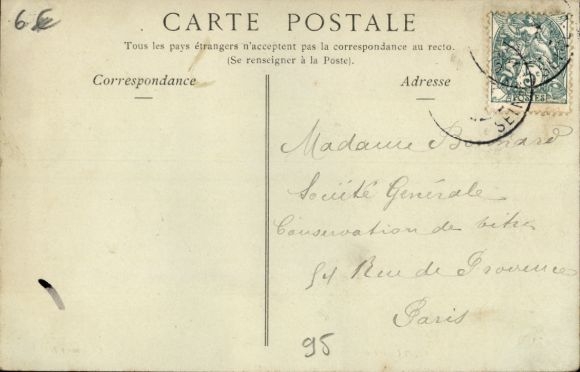 6 €
CARTE POSTALE
Tous les pays étrangers n'acceptent pas la correspondance au recto.
(Se renseigner à la Poste).
Correspondance
Adresse
POSTES
SEINE
Madame Bernard
Société Générale
Conservation de titres
54 Rue de Provence
Paris
95